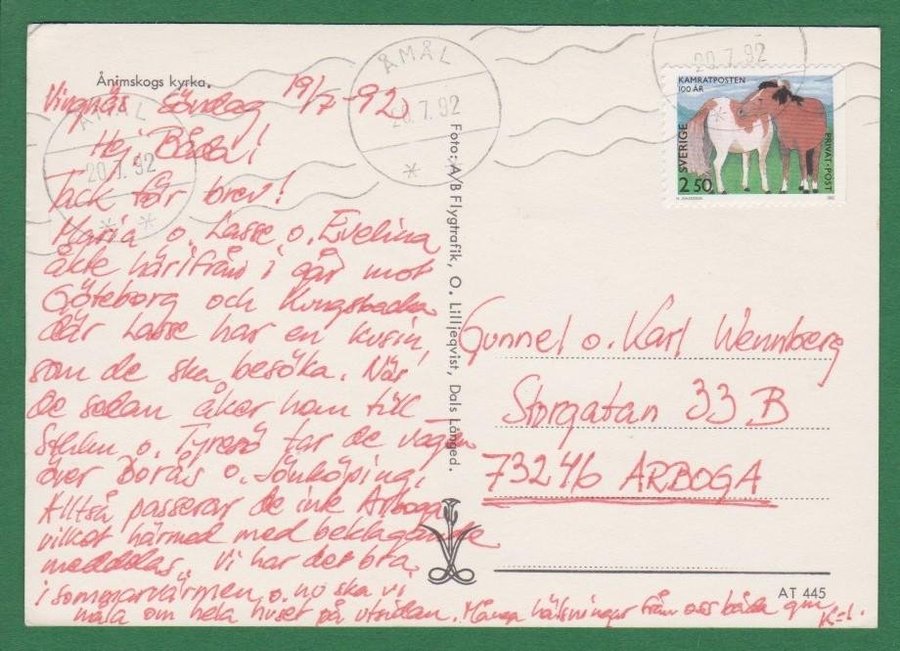 Ånimskogs kyrka.
ÅMÅL
20.7.92
ÅMÅL
20.7.92
20.7.92
KAMRATPOSTEN
100 ÅR
SVERIGE
2 50
PRIVAT-POST
Söndag 19/7-92
Hej Båda!
Tack för brev!
Maria o. Lasse o. Evelina
åkte härifrån i går mot
Göteborg och Kungsbacka
där Lasse har en kusin
som de ska besöka. När
de sedan åker hem till
Sthlm o. Tyresö tar de vägen
över Borås o. Jönköping,
Alltså passerar de inte Arboga
vilket härmed med beklagande
meddelas. Vi har det bra
i sommarvärmen o. nu ska vi
måla om hela huset på utsidan. Många hälsningar från oss båda
Foto: A/B Flygtrafik, O. Lilljeqvist, Dals Långed.
Gunnel o. Karl Wennberg
Storgatan 33 B
73246 ARBOGA
AT 445